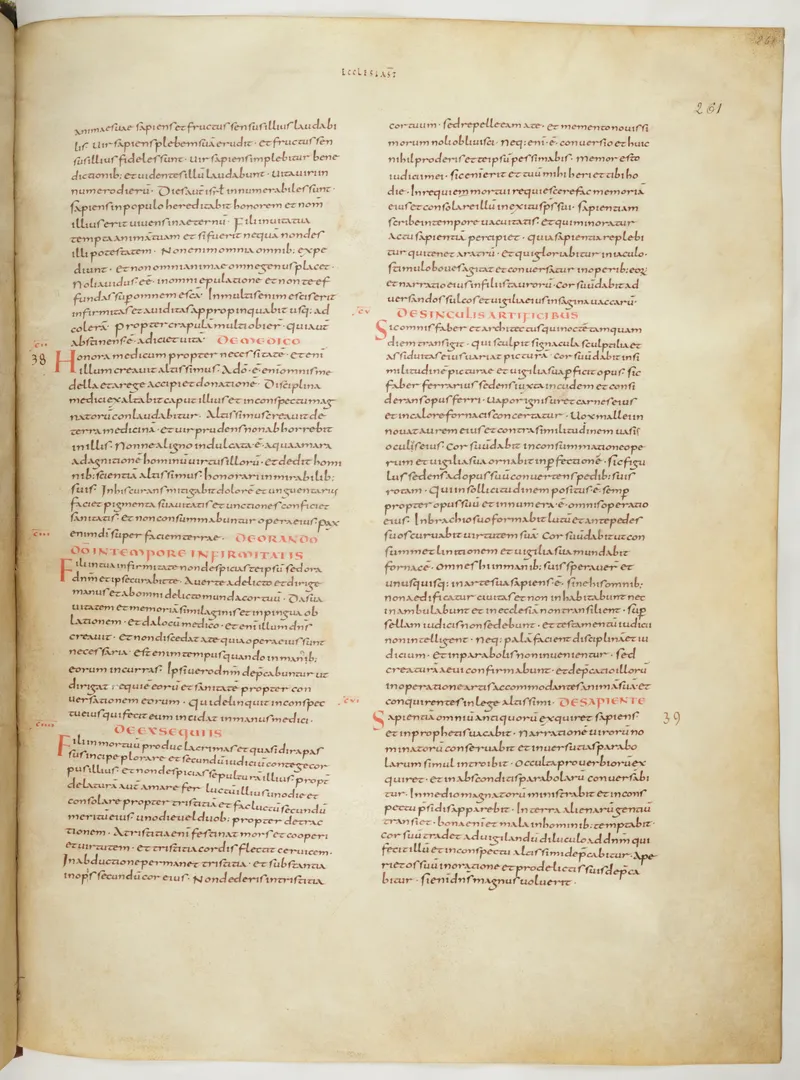 ECCLESIAST
261
261
animaesuae sapiens et fructus sensus illius laudabi
lis. Uir sapiens plebem suā erudit. et fructus sen
sus illius fideles sunt. Uir sapiens implebitur bene
dictionib: et uidentes illū laudabunt. Uita uiri in
numero dierū. Dies aūt isrł innumerabiles sunt.
sapiens in populo hereditabit honorem et nom̄
illius erit uiuens in aeternū. Fili in uita tua
tempta animā tuam et si fuerit nequā non des
illi potestatem. Non enim omnia omnib: expe
diunt. et non omni animae omne genus placet.
Noli auidus eē in omni epulatione et non te ef
fundas sup omnem escā. In multis enim escis erit
infirmitas et auiditas appropinquabit usq: ad
colerā. propter crapulā multi obier̄. qui aūt
abstinens ē adiciet uitā. DE MEDICO
38
Honora medicum propter necessitatē. et eni
illum creauit altissimus. A dō ē enī omnis me
della et a rege accipiet donationē. Disciplina
medici exaltabit caput illius et in conspectu mag
natorū conlaudabitur. Altissimus creauit de
terra medicinā et uir prudens non abhorrebit
illis. Nonne a ligno indulcata ē aqua amara
ad agnitionē hominū uirtus illorū. et dedit homi
nib: scientiā altissimus honorari in mirabilib:
suis. In his curans mitigabit dolorē et unguentarius
faciet pigmenta suauitatis et unctiones conficiet
sanitatis et non consummabuntur opera eius. pax
enim dī super faciem terrae. DE ORANDO
DŌ IN TEMPORE INFIRMITATIS
Fili in tua infirmitate non despicias te ipsū sed ora
dnm et ipse curabit te. Auerte a delicto et dirige
manus et ab omni delicto munda cor tuū. Da sua
uitatem et memoriā similaginis et inpingua ob
lationem. et da locū medico. et enī illum dns
creauit. et non discedat a te quia opera eius sunt
necessaria. est enim tempus quando in manib:
eorum incurras. Ipsi uero dnm depcabuntur ut
dirigat requiē eorū et sanitatē propter con
uersationem eorum. Qui delinquit in conspec
tu eius qui fecit eum incidat in manus medici.
DE EXSEQUIIS
Fili in mortuū produc lacrimas et quasi dira pas
sus incipe plorare et secundū iudiciū contege cor
pus illius et non despicias sepulturā illius. propt
delaturā aūt amare fer luctū illius uno die et
consolare propter tristitiā. et fac luctū secundū
meritū eius uno die uel duob: propter detrac
tionem. A tristitia enī festinat mors et cooperi
et uirtutem. et tristitia cordis flectit ceruicem.
In abductione permanet tristitia. et substantia
inopis secundū cor eius. Non dederis in tristitia
cor tuum. sed repelle eam a te. et memento nouissi
morum noli obliuisci. Neq: enī ē conuersio et huic
nihil proderis et te ipsū pessimabis. Memor esto
iudicii mei. sic enī erit et tuū mihi heri et tibi ho
die. In requie mortui requiescere fac memoriā
eius et consolare illū in exitu sps sui. Sapientiam
scribe in tempore uacuitatis. et qui minoratur
actu sapientiā percipiet. quia sapientia replebi
tur qui tenet aratrū. et qui gloriabitur in iaculo.
stimulo boues agitat et conuersatur in operib: eoȝ
et narratio eius in filiis taurorū. Cor suū dabit ad
uersandos sulcos et uigilia eius in sagina uaccarū.
DE SINGULIS ARTIFICIBUS
Sic omnis faber et architectus qui noctē tamquam
diem transigit. qui sculpit signacula sculptilia et
assiduitas eius uariat picturā. Cor suū dabit in si
militudinē picturae et uigilia sua pficit opus. sic
faber ferrarius sedens iuxta incudem et consi
derans opus ferri. Uapor ignis uret carnes eius
et in calore fornacis concertatur. Uox mallei in
nouat aurem eius et contra similitudinem uasis
oculis eius. Cor suū dabit in consummatione ope
rum et uigilia sua ornabit in pfectionē. sic figu
lus sedens ad opus suū conuertens pedib: suis
rotam. Qui in sollicitudinem positus ē semp
propter opus suū et in numero ē omnis operatio
eius. In brachio suo formabit lutū et ante pedes
suos curuabit uirtutem suā. Cor suū dabit ut con
summet linitionem et uigilia sua mundabit
fornacē. Omnes hi in manib: suis sperauer̄ et
unusquisq: in arte sua sapiens ē. sine his omnib:
non aedificatur ciuitas et non inhabitabunt nec
inambulabunt et in ecclesiā non transilient. sup
sellam iudicis non sedebunt. et testamentū iudicii
non intellegent. Neq: palā facient disciplinā et iu
dicium. et in parabolis non inuenientur. sed
creaturā aeui confirmabunt. et depcatio illorū
in operatione artis accommodantes animā suā et
conquirentes in lege altissimi. DE SAPIENTE
39
Sapientiā omniū antiquorū exquiret sapiens
et in prophetis uacabit. Narrationē uirorū no
minatorū conseruabit et in uersutias parabo
larum simul introibit. Occulta prouerbiorū ex
quiret. et in absconditis parabolarū conuersabi
tur. In medio magnatorū ministrabit et in cons
pectu psidis apparebit. In terra alienarū gentiū
transiet. bona enī et mala in hominib: temptabit.
Cor suū tradet ad uigilandū diluculo ad dnm qui
fecit illū et in conspectu altissimi depcabitur. Ape
riet os suū in oratione et pro delictis suis depca
bitur. si enī dns magnus uoluerit.